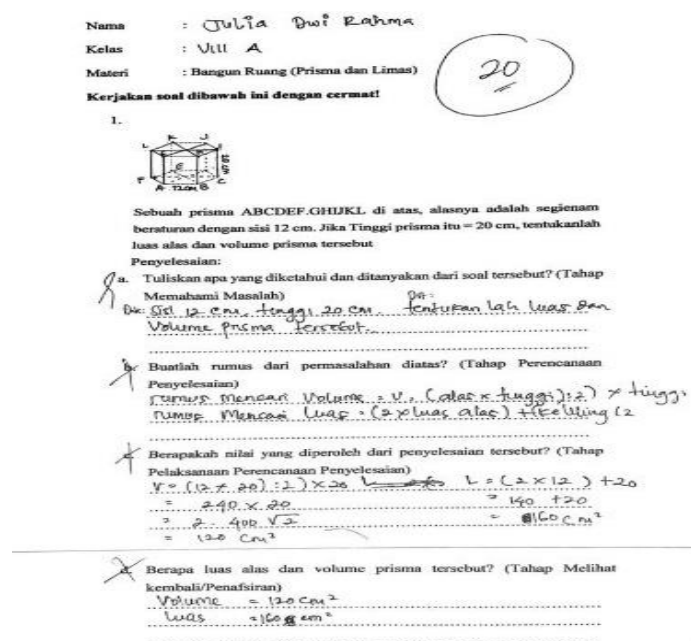 Nama : Julia Dwi Rahma
Kelas : VIII A
Materi : Bangun Ruang (Prisma dan Limas)
20
Kerjakan soal dibawah ini dengan cermat!
1.
L K J
F E
A 12cm B C
Sebuah prisma ABCDEF.GHIJKL di atas, alasnya adalah segienam
beraturan dengan sisi 12 cm. Jika Tinggi prisma itu = 20 cm, tentukanlah
luas alas dan volume prisma tersebut
Penyelesaian:
a. Tuliskan apa yang diketahui dan ditanyakan dari soal tersebut? (Tahap
Memahami Masalah) Dit:
Dik: Sisi 12 cm, tinggi 20 cm tentukan lah luas dan
Volume prisma tersebut.
b. Buatlah rumus dari permasalahan diatas? (Tahap Perencanaan
Penyelesaian)
rumus mencari Volume = V. (alas x tinggi):2) x tinggi
rumus Mencari luas = (2 x luas alas) + (keliling (2
c. Berapakah nilai yang diperoleh dari penyelesaian tersebut? (Tahap
Pelaksanaan Perencanaan Penyelesaian)
V = (12 x 20) : 2) x 20 L = (2 x 12) + 20
= 240 x 20 = 140 + 20
= 2. 400 √2 = 160 cm²
= 120 cm²
d. Berapa luas alas dan volume prisma tersebut? (Tahap Melihat
kembali/Penafsiran)
Volume = 120 cm²
luas = 160 cm²